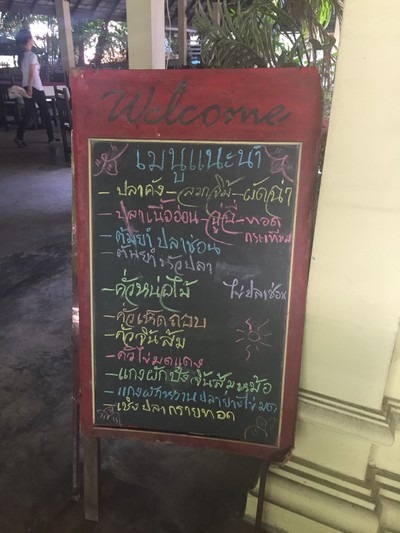 Welcome
เมนูแนะนำ
- ปลาคัง - ลวกจิ้ม - ผัดฉ่า
- ปลาเนื้ออ่อน - ฉู่ฉี่ - ทอดกระเทียม
- ต้มยำปลาช่อน
- ต้มยำหัวปลา
- คั่วหน่อไม้ ไข่ปลาช่อน
- คั่วเห็ดถอบ
- คั่วจิ้นส้ม
- คั่วไข่มดแดง
- แกงผักปั๋งจิ้นส้มหม้อ
- แกงผักหวานปลาย่างไข่มด
- เชิงปลากรายทอด